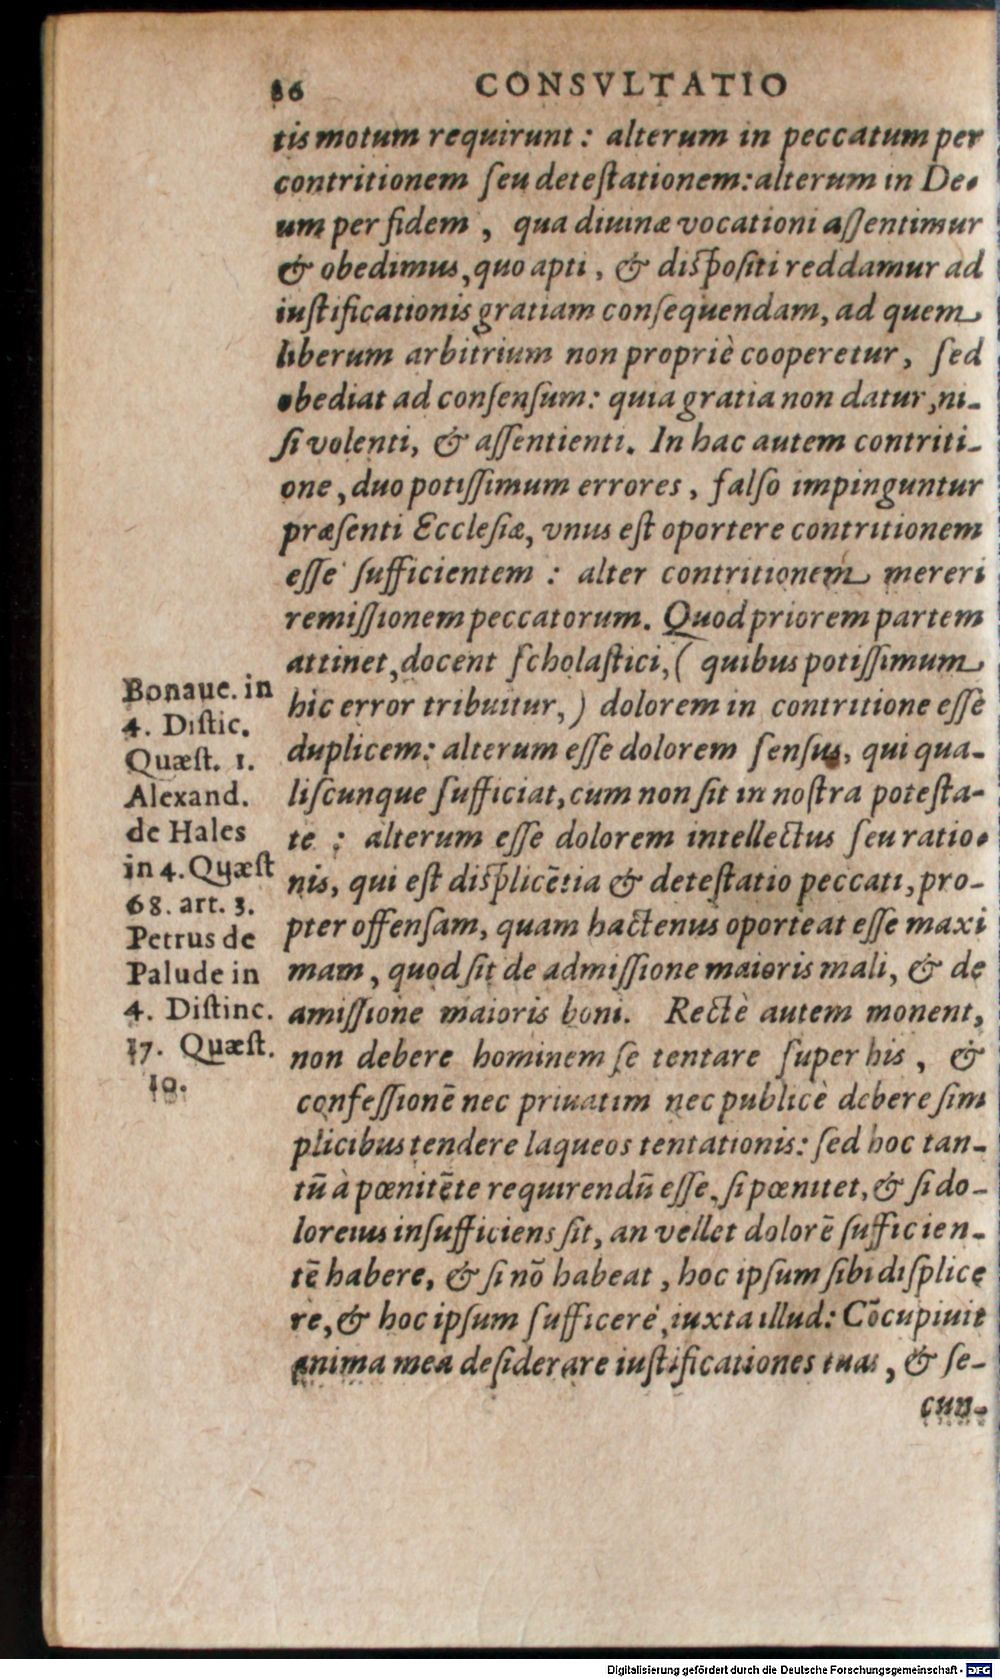 86 CONSVLTATIO
tis motum requirunt: alterum in peccatum per
contritionem ſeu deteſtationem: alterum in De-
um per fidem, qua diuinæ vocationi aſſentimur
& obedimus, quo apti, & diſpoſiti reddamur ad
iuſtificationis gratiam conſequendam, ad quem
liberum arbitrium non propriè cooperetur, ſed
obediat ad conſenſum: quia gratia non datur, ni-
ſi volenti, & aſſentienti. In hac autem contriti-
one, duo potiſſimum errores, falſo impinguntur
præſenti Eccleſiæ, vnus eſt oportere contritionem
eſſe ſufficientem: alter contritionem mereri
remiſſionem peccatorum. Quod priorem partem
attinet, docent ſcholaſtici, (quibus potiſſimum
hic error tribuitur,) dolorem in contritione eſſe
duplicem: alterum eſſe dolorem ſenſus, qui qua-
liſcunque ſufficiat, cum non ſit in noſtra poteſta-
te: alterum eſſe dolorem intellectus ſeu ratio-
nis, qui eſt diſplicẽtia & deteſtatio peccati, pro-
pter offenſam, quam hactenus oporteat eſſe maxi
mam, quod ſit de admiſſione maioris mali, & de
amiſſione maioris boni. Rectè autem monent,
non debere hominem ſe tentare ſuper his, &
confeſſionē nec priuatim nec publicè debere ſim
plicibus tendere laqueos tentationis: ſed hoc tan-
tū à pœnitẽte requirendū eſſe, ſi pœnitet, & ſi do-
lor eius inſufficiens ſit, an vellet dolorē ſufficien-
tē habere, & ſi nō habeat, hoc ipſum ſibi diſplice
re, & hoc ipſum ſufficere, iuxta illud: Cōcupiuit
anima mea deſiderare iuſtificationes tuas, & ſe-
cun-
Bonaue. in
4. Diſtic.
Quæſt. 1.
Alexand.
de Hales
in 4. Quæſt
68. art. 3.
Petrus de
Palude in
4. Diſtinc.
17. Quæſt.
10.
Digitalisierung gefördert durch die Deutsche Forschungsgemeinschaft - DFG